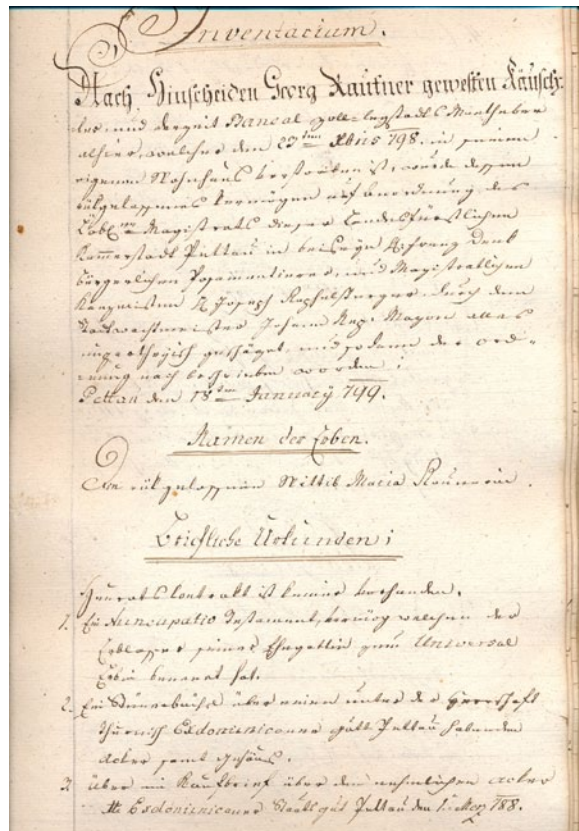 Inventarium.
Nach Hinscheiden Georg Rautner gewesten Käusch-
ler, und derzeit Bancal zoll-legstadts
alhier, welcher den 23ten Xbris 798. in seinem
eigenen Wohnhaus verstorben ist, wurde dessen
rükgelassenes Vermögen auf Anordnung des
Löbl. Magistrats dieser Landesfürstlichen
Kammerstadt Pettau in beiseyn H: Franz Denk
bürgerlichen Posamentierer, und Magistratlichen
Kanzeristen H: Joseph durch den
Stadtwachtmeister Johann Nep: Mayon alles
geschäzet, und sodann der Ord-
nung nach beschrieben worden;
Pettau den 18ten January 799.
Namen der Erben.
Die rükgelassene Wittib Maria
Briefliche Urkunden;
Heurats Contrakt ist keiner vorhanden.
1. Ein Nuncupatio Testament, vermög welchen der
Erblasser seine Ehegattin zum Universal
Erbin benannt hat.
2. Ein Steuerbüchl über einen unter der Herrschaft
Thurnisch Exdominicaner gült Pettau habenden
Acker samt
3. über ein Kaufbrief über den nehmlichen acker
Exdominicaner Staatsgut Pettau den 788.